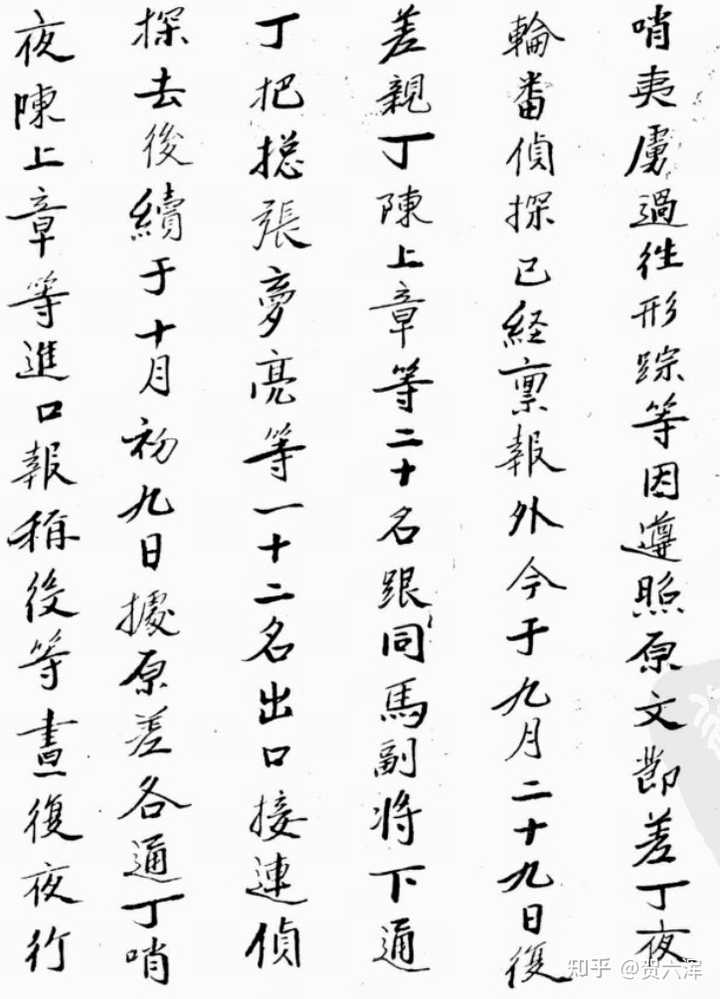 哨夷虜過徃形踪等因遵照原文節差丁夜
輪番偵探已経禀報外今于九月二十九日復
差親丁陳上章等二十名跟同馬副将下通
丁把捴張夢亮等一十二名出口接連偵
探去後續于十月初九日據原差各通丁哨
夜陳上章等進口報稱役等晝復夜行
知乎 @贺六浑